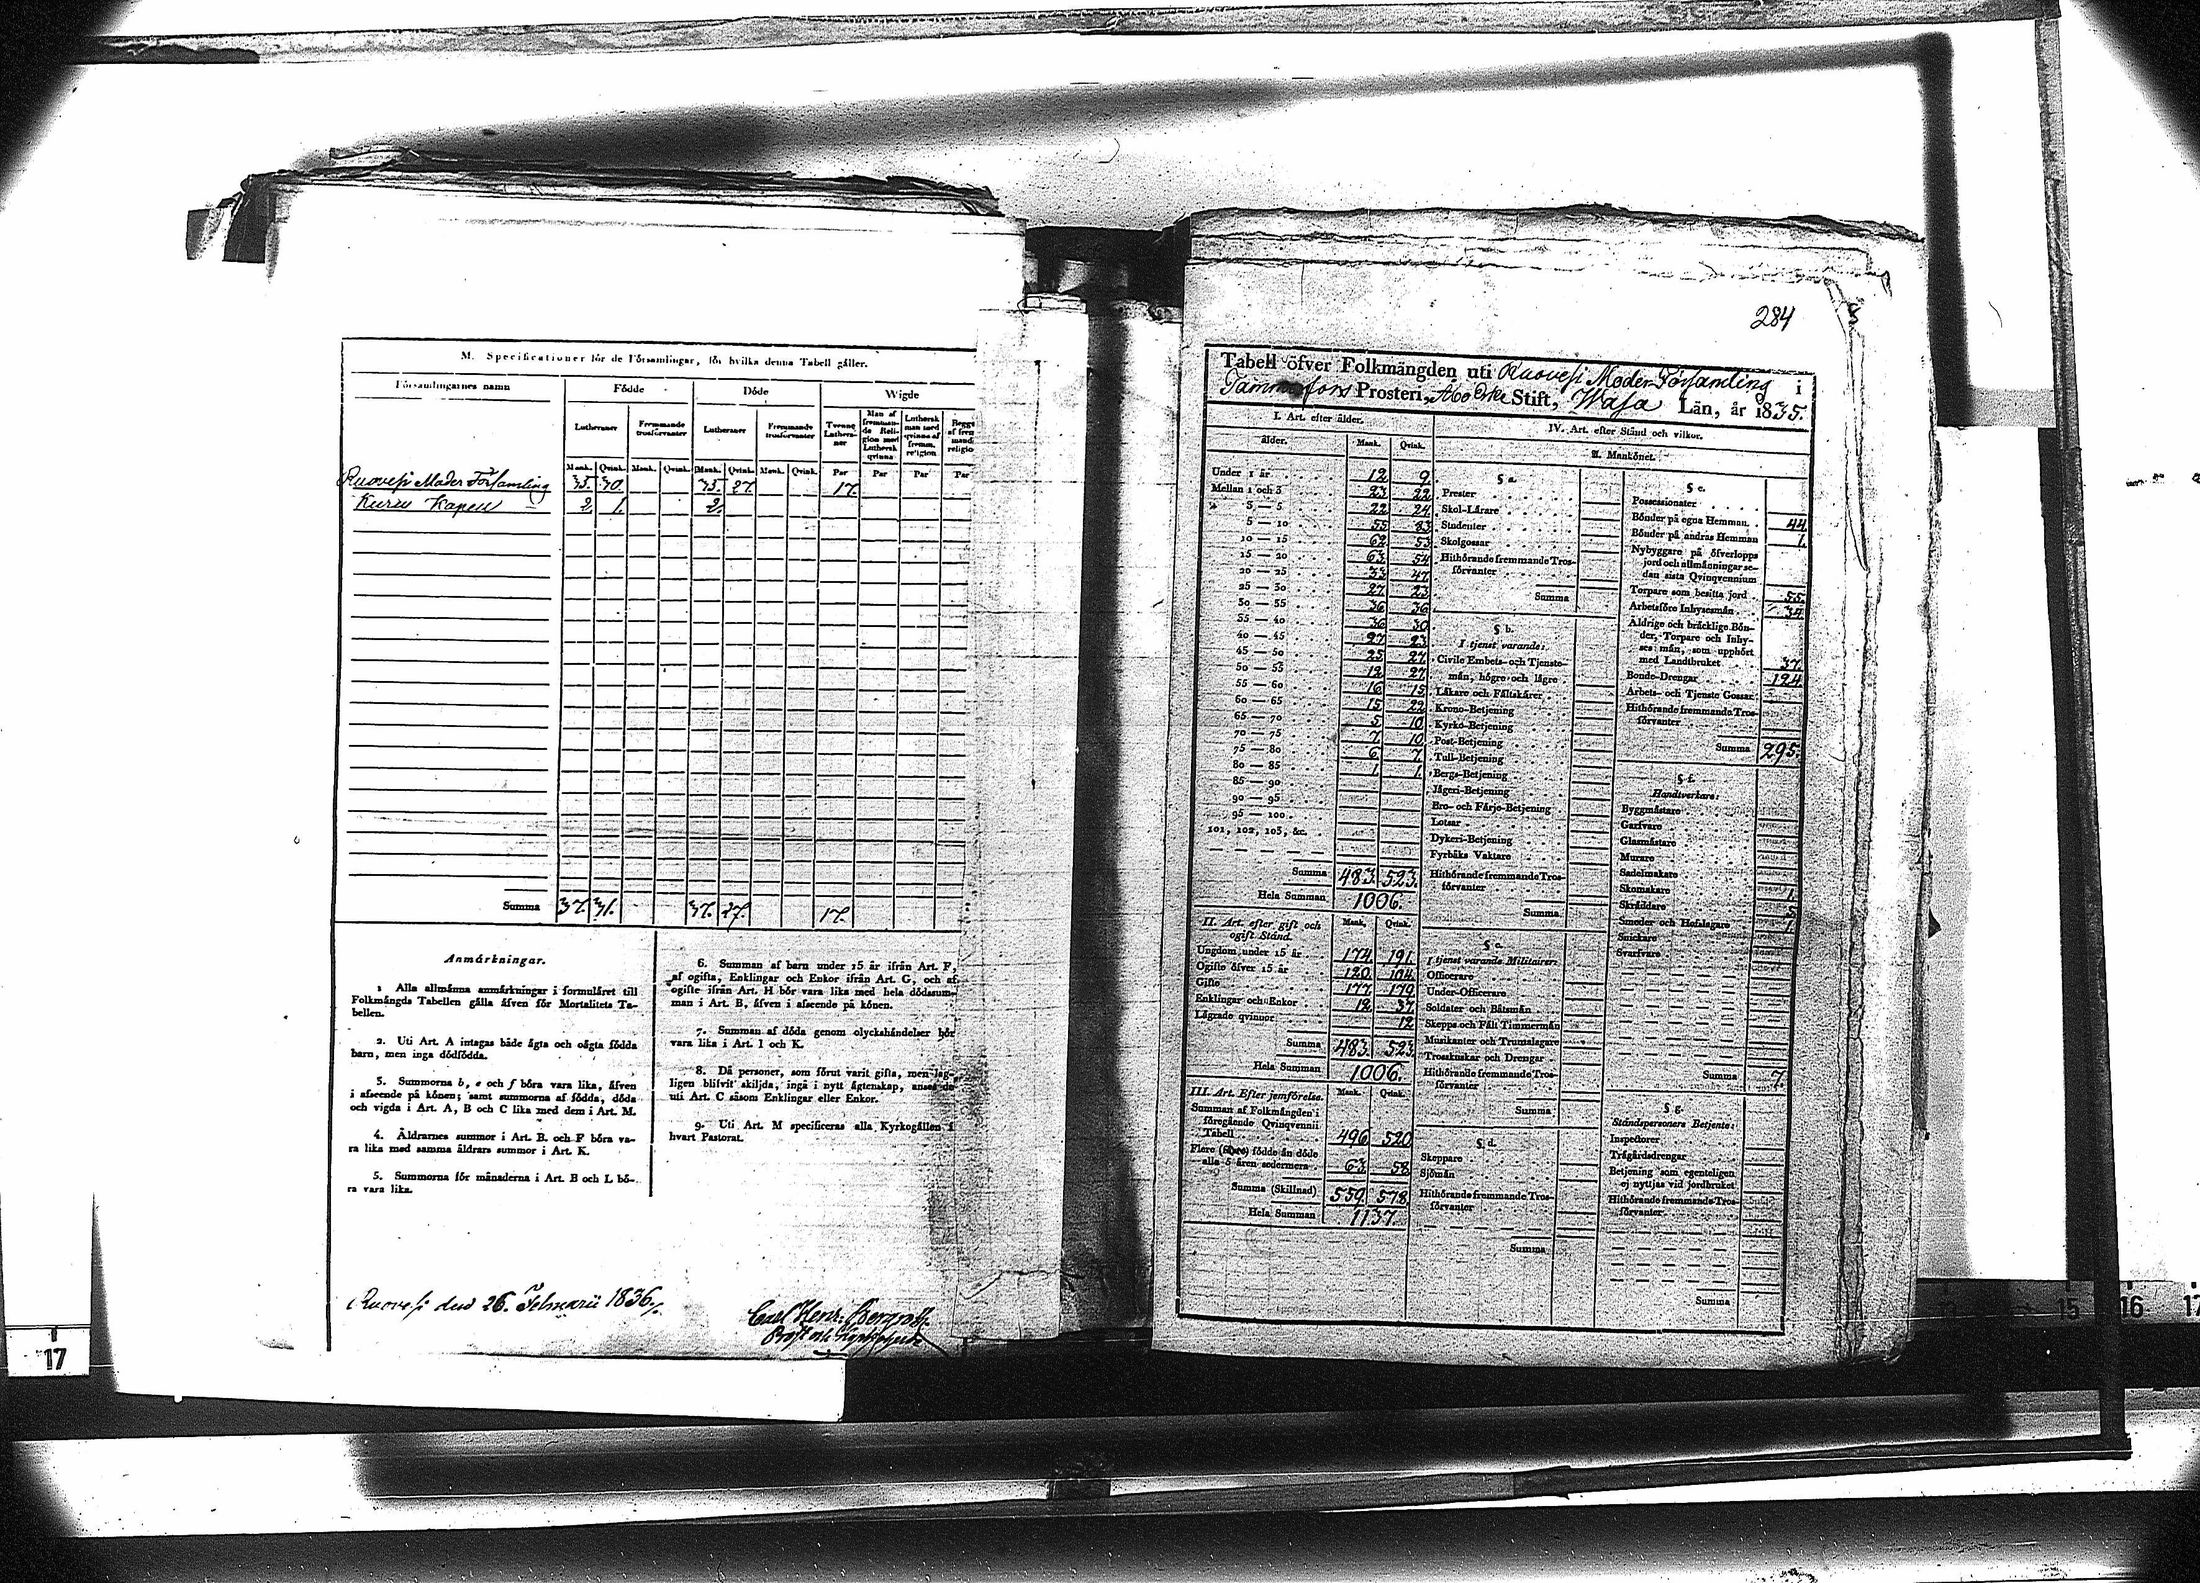 M. Specificationer för de Församlingar, för hvilka denna Tabell gäller.
Församlingarnes namn Födde Döde Wigde
Lutheraner Fremmande trosförvanter Lutheraner Fremmande trosförvanter Tvenne Lutheraner Man af fremmande Religion med Luthersk qvinna Luthersk man med qvinna af fremm. religion
Mank. Qvink. Mank. Qvink. Mank. Qvink. Mank. Qvink. Par Par Par Par
Ruovesi Moder Församling 35. 30. 35. 27. 17.
Kuru Kapell 2. 1. 2.
Summa 37. 31. 37. 27. 17.
Anmärkningar.
1 Alla allmänna anmärkningar i formuläret till
Folkmängds Tabellen gälla äfven för Mortalitets Ta-
bellen.
2. Uti Art. A intagas både ägta och oägta födda
barn, men inga dödfödda.
3. Summorna b, e och f böra vara lika, äfven
i afseende på könen; samt summorna af födda, döda
och vigda i Art. A, B och C lika med dem i Art. M.
4. Åldrarnes summor i Art. B. och F böra va-
ra lika med samma åldrars summor i Art. K.
5. Summorna för månaderna i Art. B och L bö-
ra vara lika.
6. Summan af barn under 15 år ifrån Art. F,
af ogifta, Enklingar och Enkor ifrån Art. G, och af
ogifte ifrån Art. H bör vara lika med hela dödssum-
man i Art. B, äfven i afseende på könen.
7. Summan af döda genom olyckshändelser bör
vara lika i Art. I och K.
8. Då personer, som förut varit gifta, men lag-
ligen blifvit skiljda, ingå i nytt ägtenskap, anses de
uti Art. C såsom Enklingar eller Enkor.
9. Uti Art. M specificeras alla Kyrkogällen i
hvart Pastorat.
Ruovesi den 26. Februarii 1836.
Carl Henr. Bergroth
284
Tabell öfver Folkmängden uti Ruovesi Moder Församling i
Tammerfors Prosteri, Åbo Erke Stift, Wasa Län, år 1835.
I. Art. efter ålder.
ålder. Mank. Qvink.
Under 1 år 12 9
Mellan 1 och 3 23 22
3 — 5 22 24
5 — 10 55 83
10 — 15 62 53
15 — 20 63 54
20 — 25 33 47
25 — 30 27 23
30 — 35 36 36
35 — 40 36 30
40 — 45 27 23
45 — 50 25 27
50 — 55 12 27
55 — 60 16 15
60 — 65 15 22
65 — 70 5 10
70 — 75 7 10
75 — 80 6 7
80 — 85 1. 1.
85 — 90
90 — 95
95 — 100
101, 102, 103, &c.
Summa 483. 523.
Hela Summan 1006.
II. Art. efter gift och ogift Stånd. Mank. Qvink.
Ungdom under 15 år 174 191
Ogifte öfver 15 år 120 104
Gifte 177 179
Enklingar och Enkor 12 37
Lägrade qvinnor 12
Summa 483. 523.
Hela Summan 1006.
III. Art. Efter jemförelse. Mank. Qvink.
Summan af Folkmängden i
föregående Qvinqvennii
Tabell 496 520
Flere födde än döde
alla 5 åren sedermera 63 58
Summa (Skillnad) 559 578
Hela Summan 1137.
IV. Art. efter Stånd och vilkor.
A. Mankönet.
§ a.
Prester
Skol-Lärare
Studenter
Skolgossar
Hithörande fremmande Tros-
förvanter
Summa
§ b.
I tjenst varande:
Civile Embets- och Tjenste-
män, högre och lägre
Läkare och Fältskärer
Krono-Betjening
Kyrko-Betjening
Post-Betjening
Tull-Betjening
Bergs-Betjening
Jägeri-Betjening
Bro- och Färje-Betjening
Lotsar
Dykeri-Betjening
Fyrbåks Vaktare
Hithörande fremmande Tros-
förvanter
Summa
§ c.
I tjenst varande Militairer:
Officerare
Under-Officerare
Soldater och Båtsmän
Skepps och Fält Timmermän
Musikanter och Trumslagare
Trosskuskar och Drengar
Hithörande fremmande Tros-
förvanter
Summa
§ d.
Skeppare
Sjömän
Hithörande fremmande Tros-
förvanter
Summa
§ e.
Possessionater
Bönder på egna Hemman 44
Bönder på andras Hemman 1.
Nybyggare på öfverlopps
jord och allmänningar se-
dan sista Qvinqvennium
Torpare som besitta jord 55.
Arbetsföre Inhysesmän 34
Åldrige och bräcklige Bön-
der, Torpare och Inhy-
ses män, som upphört
med Landtbruket 37.
Bonde-Drengar 124
Arbets- och Tjenste Gossar
Hithörande fremmande Tros-
förvanter
Summa 295.
§ f.
Handtverkare:
Byggmästare
Garfvare
Glasmästare
Murare
Sadelmakare
Skomakare 1.
Skräddare 5
Smeder och Hofslagare 1.
Snickare
Svarfvare
Summa 7.
§ g.
Ståndspersoners Betjente:
Inspektorer
Trägårdsdrengar
Betjening som egenteligen
ej nyttjas vid jordbruket
Hithörande fremmande Tros-
förvanter
Summa
17
15 16 17